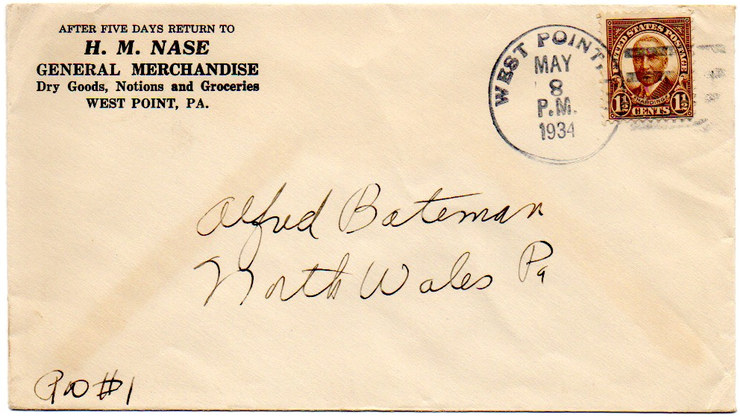 AFTER FIVE DAYS RETURN TO
H. M. NASE
GENERAL MERCHANDISE
Dry Goods, Notions and Groceries
WEST POINT, PA.
WEST POINT,
MAY
8
P.M.
1934
UNITED STATES POSTAGE
HARDING
1½ CENTS 1½
Alfred Bateman
North Wales Pa
#1